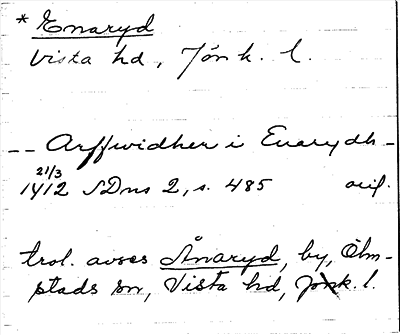 * Enaryd
Vista hd, Jönk. l.
-- Arffwidher i Enarydh -
21/3
1412 SDns 2, s. 485 orig.
trol. avses Ånaryd, by, Ölm-
stads sn, Vista hd, Jönk. l.